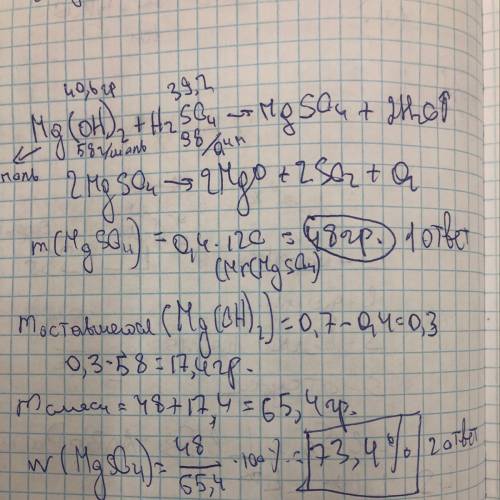 40,6гр 39,2
Mg(OH)2 + H2SO4 → MgSO4 + 2H2O↑
58г/моль 98
моль
2MgSO4 → 2MgO + 2SO2 + O2
m(MgSO4) = 0,4 · 120 = 48гр. 1 ответ
(Mr(MgSO4)
mоставшегося (Mg(OH)2) = 0,7 - 0,4 = 0,3
0,3 · 58 = 17,4гр.
mсмеси = 48 + 17,4 = 65,4гр.
w(MgSO4) = 48/65,4 · 100% = 73,4% 2 ответ